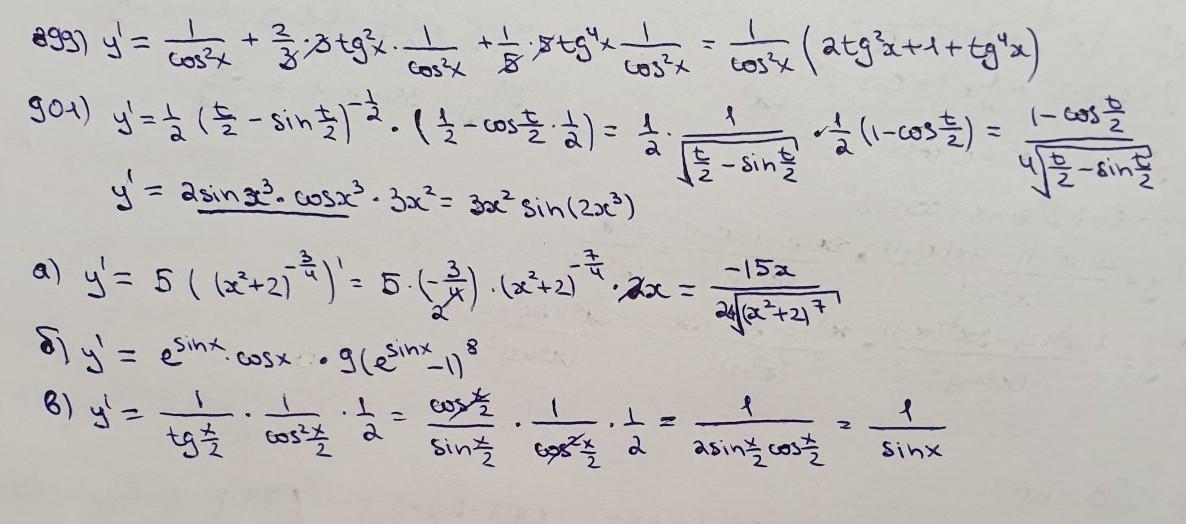 899) y' = 1/cos²x + 2/3 · 3tg²x · 1/cos²x + 1/5 · 5tg⁴x 1/cos²x = 1/cos²x (2tg²x+1+tg⁴x)
901) y' = 1/2 (t/2 - sin t/2)^(-1/2) · (1/2 - cos t/2 · 1/2) = 1/2 · 1/√(t/2 - sin t/2) · 1/2 (1-cos t/2) = (1-cos t/2)/(4√(t/2 - sin t/2))
y' = 2sinx³ · cosx³ · 3x² = 3x² sin(2x³)
а) y' = 5 ((x²+2)^(-3/4))' = 5·(-3/4)·(x²+2)^(-7/4) · 2x = -15x/(2∜(x²+2)⁷)
б) y' = e^(sinx) · cosx · 9(e^(sinx) -1)⁸
в) y' = 1/(tg x/2) · 1/(cos² x/2) · 1/2 = (cos x/2)/(sin x/2) · 1/(cos² x/2) · 1/2 = 1/(2sin x/2 cos x/2) = 1/sinx